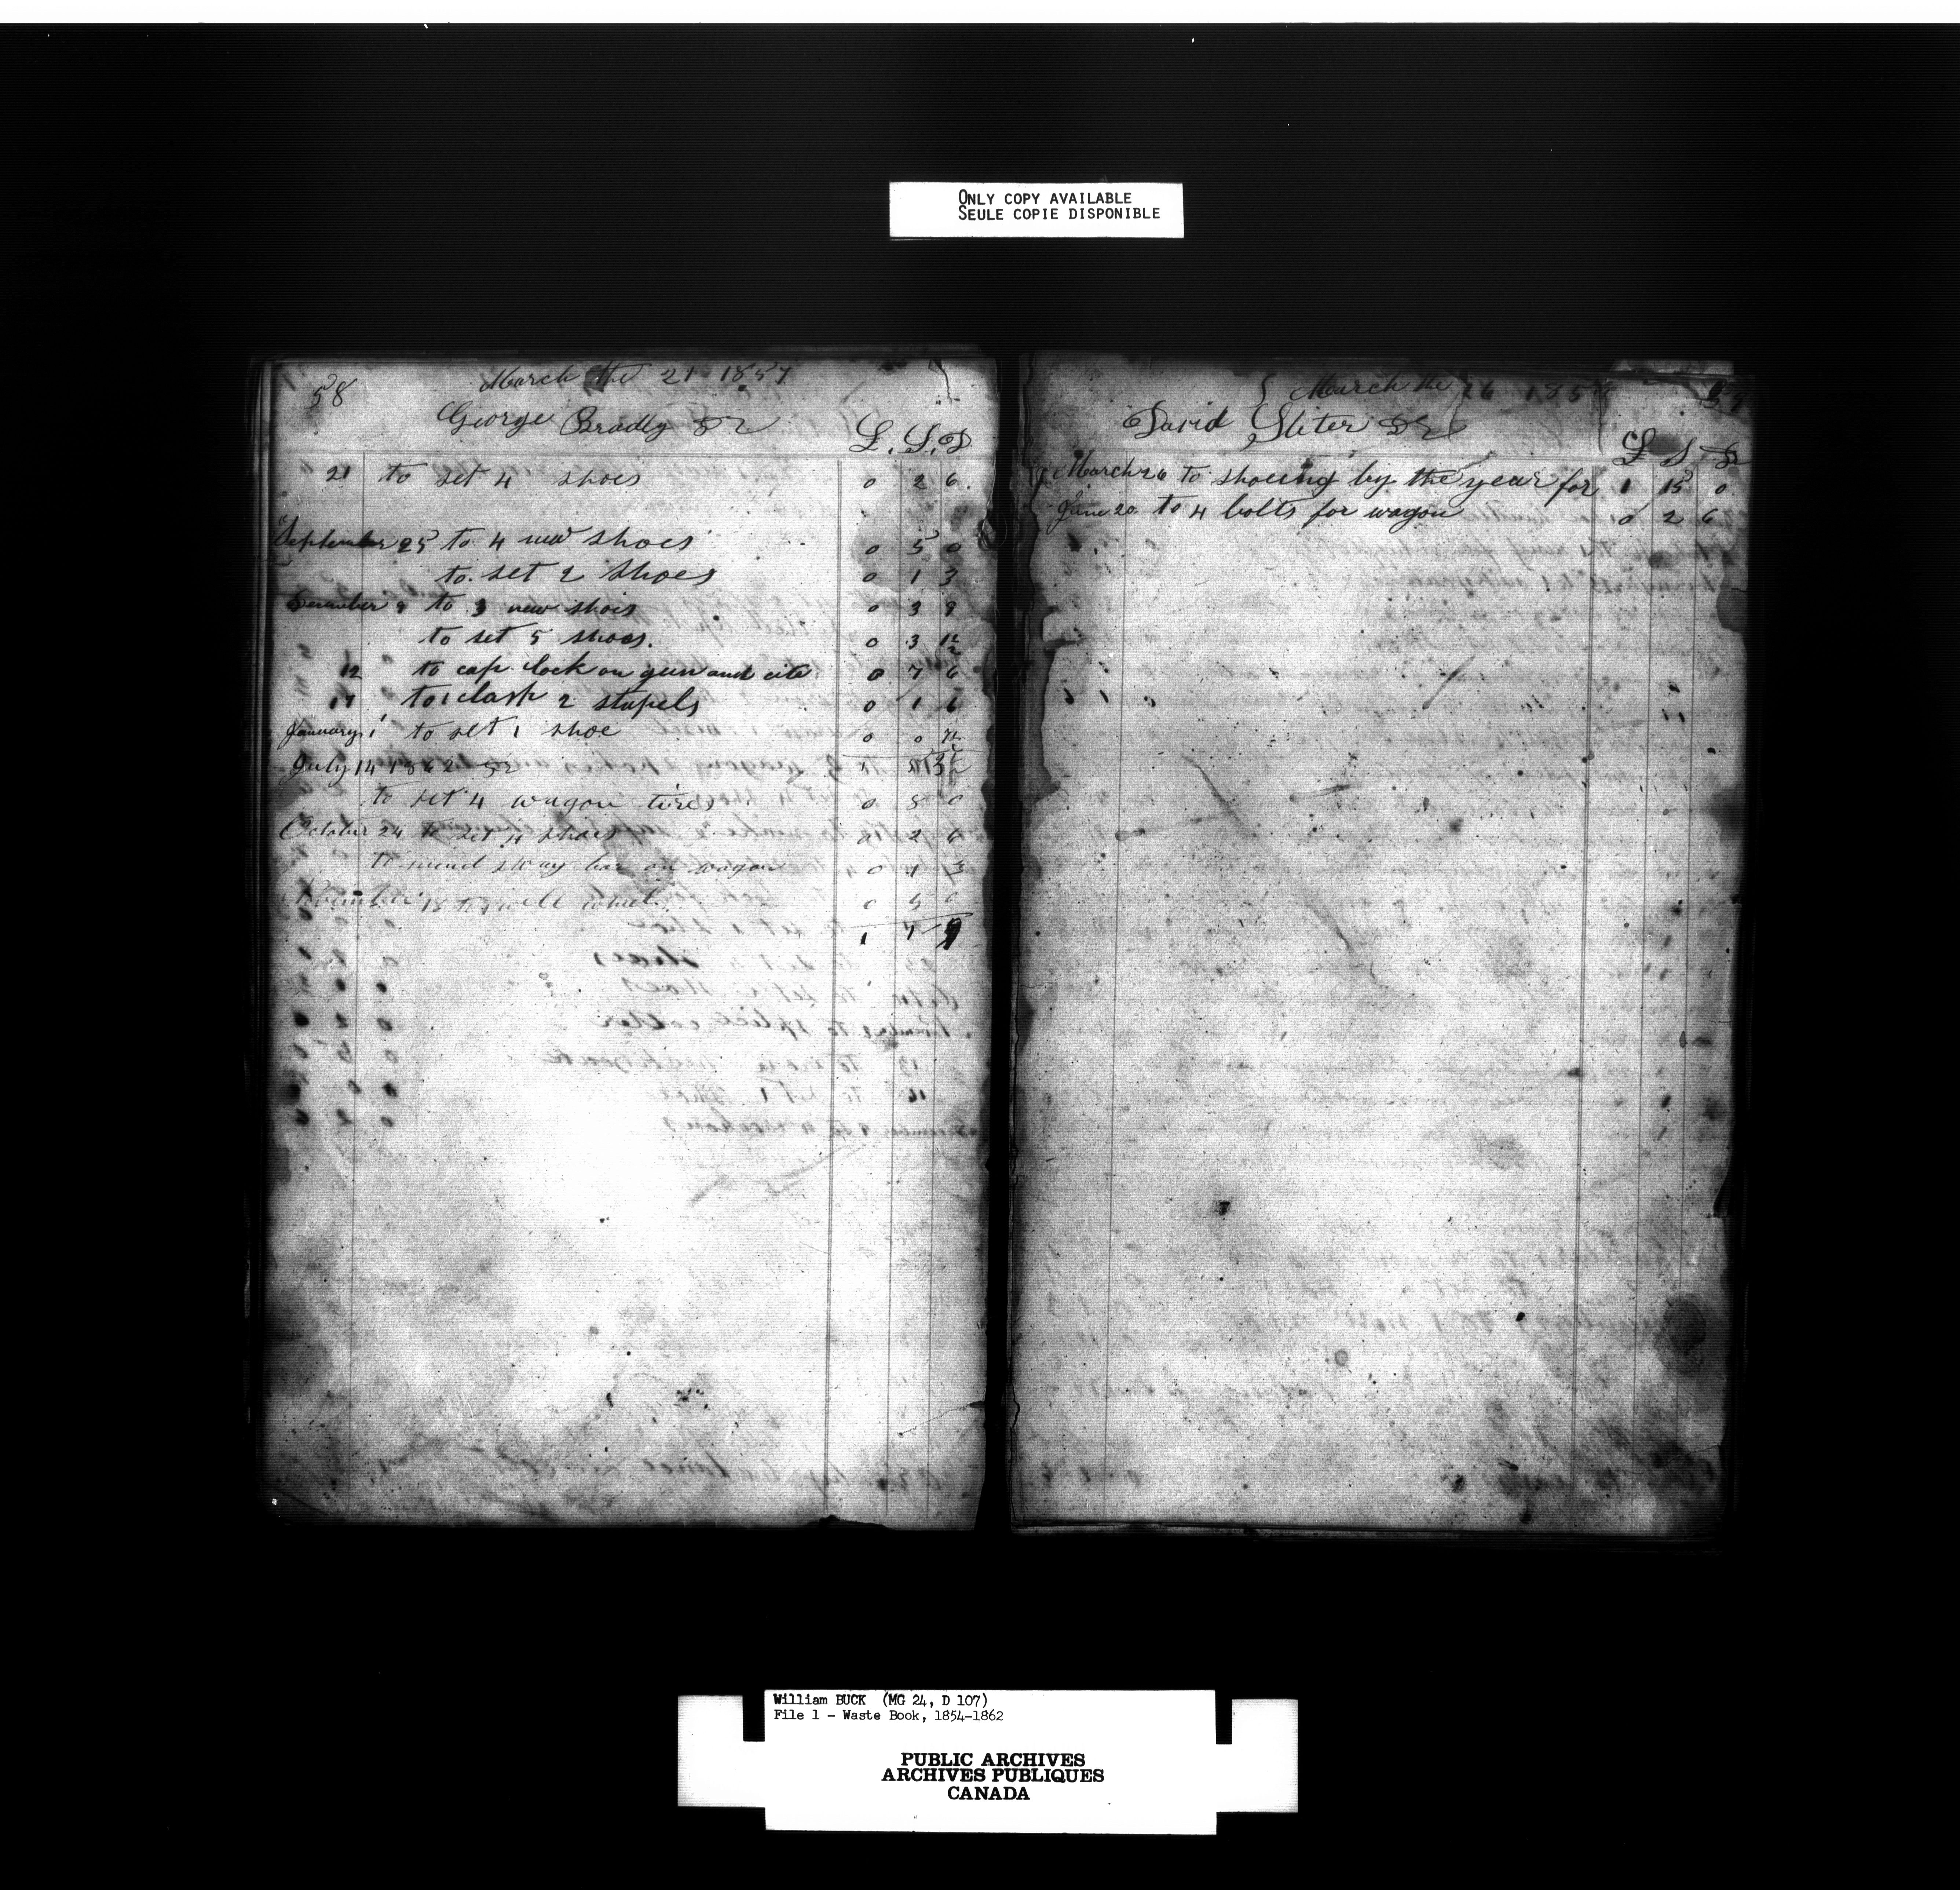 ONLY COPY AVAILABLE
SEULE COPIE DISPONIBLE
58
March the 21 1857
George Bradly Dr
L. S. D
21 to set 4 shoes 0 2 6
September 25 to 4 new shoes 0 5 0
to set 2 shoes 0 1 3
December 9 to 3 new shoes 0 3 9
to set 5 shoes. 0 3 1½
12 to cap lock on gun and cite 0 7 6
17 to 1 clasp 2 stapels 0 1 6
January 1 to set 1 shoe 0 0 7½
July 14 1862 Dr 1
to set 4 wagon tires 0 0
October 24 to set 4 shoes 0 2 6
to mend sway bar on wagon 0 1 3
November 18 to well wheel 0 5 0
1 7 9
March the 26 185
David Sliter Dr
L S D
March 26 to shoeing by the year for 1 15 0
June 20 to 4 bolts for wagon 0 2 6
William BUCK (MG 24, D 107)
File 1 - Waste Book, 1854-1862
PUBLIC ARCHIVES
ARCHIVES PUBLIQUES
CANADA